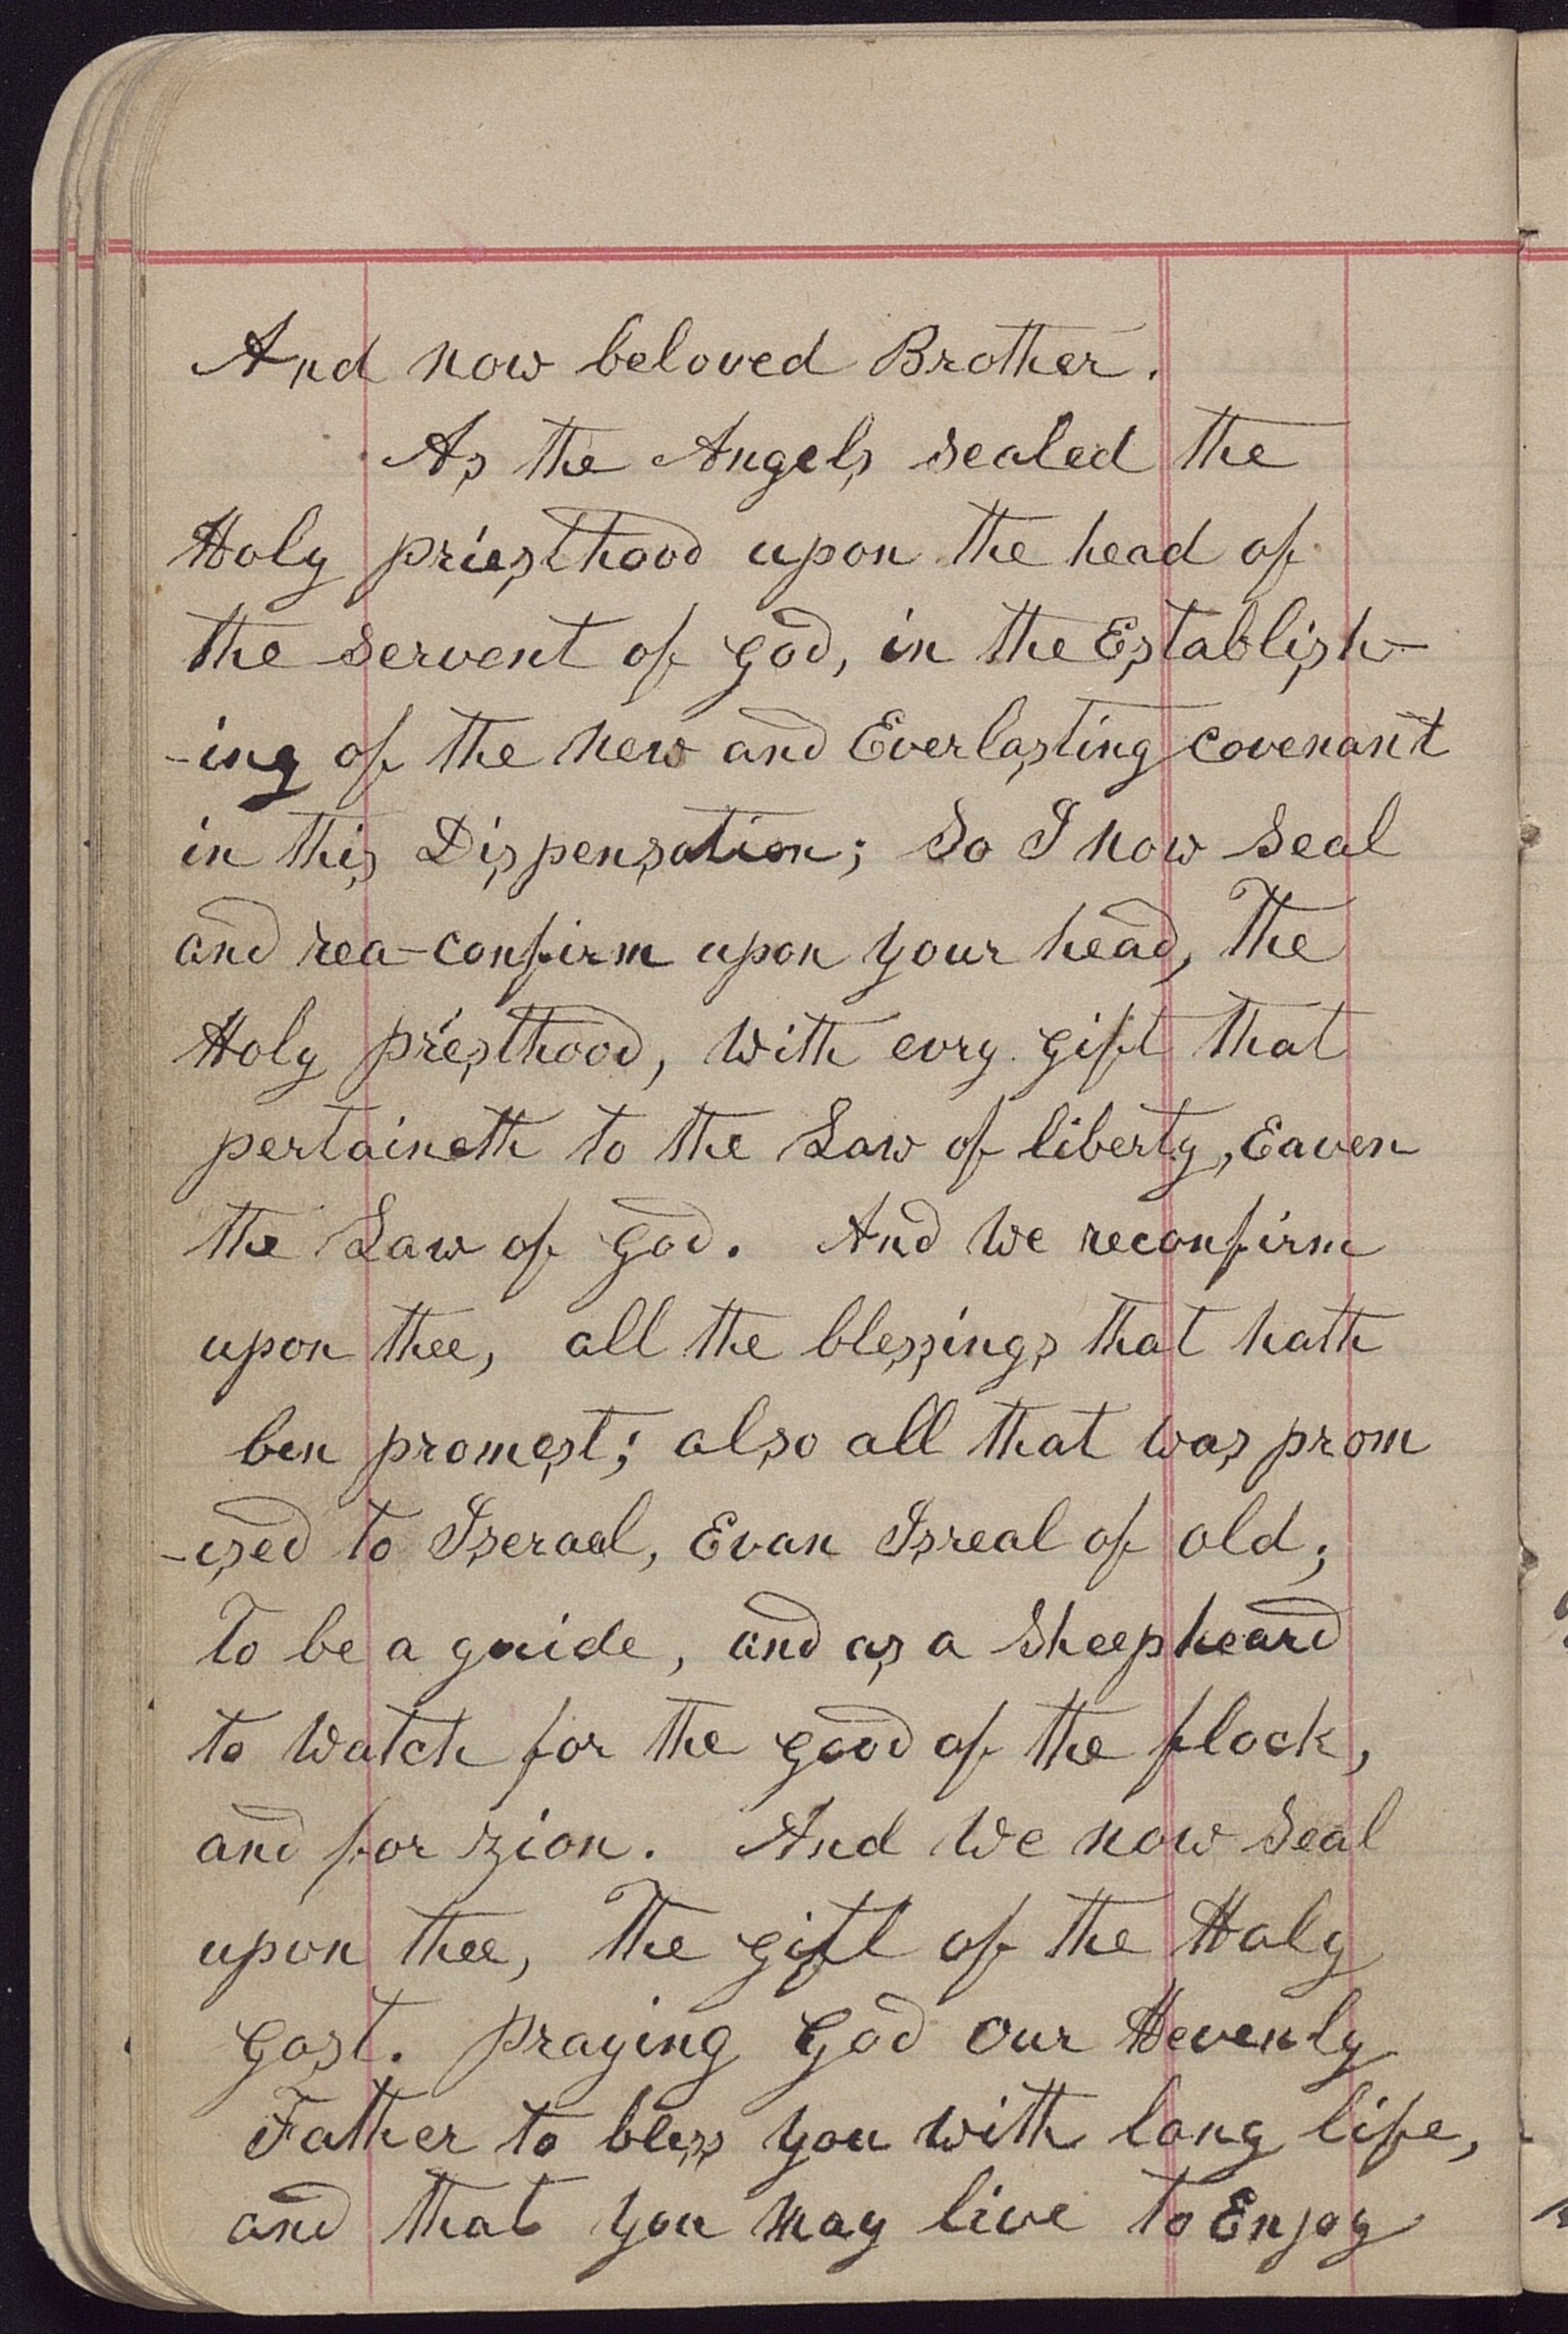 And now beloved Brother.
As the Angels sealed the
Holy priesthood upon the head of
the servent of God, in the Establish-
-ing of the New and Everlasting covenant
in this Dispensation; So I now Seal
and rea-confirm upon your head, the
Holy priesthood, with evry gift that
pertaineth to the Law of liberty, Eaven
the Law of God. And We reconfirm
upon thee, all the blessings that hath
ben promest; also all that was prom
-ised to Iserael, Evan Isreal of old;
To be a guide, and as a Sheepheard
to Watch for the good of the flock,
and for zion. And We now Seal
upon thee, The gift of the Holy
Gost. praying God our Hevenly
Father to bless you with long life,
and that you may live to Enjoy